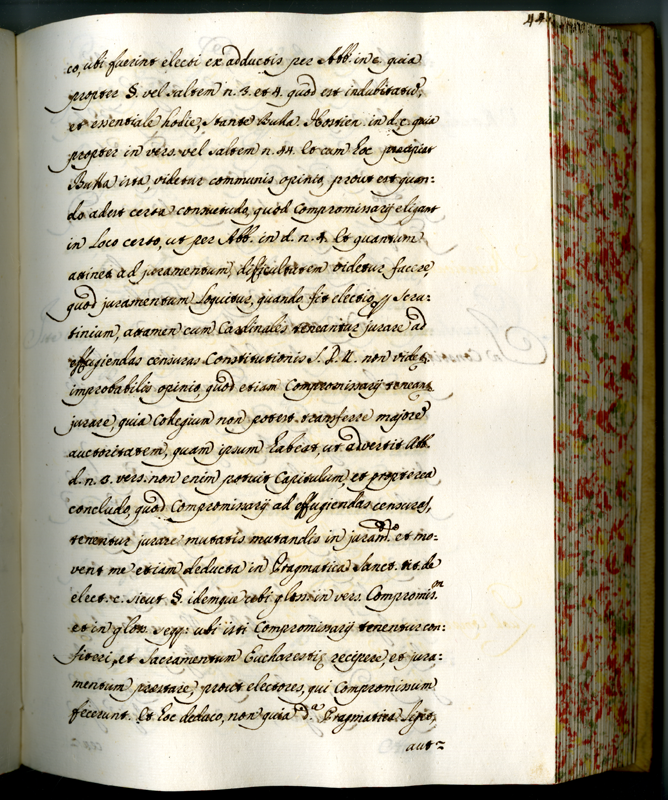 44
co, ubi fuerint electi ex adductis per Abb. in c. quia
propter §. vel saltem n. 3. et 4. quod est indubitatũ,
et essentiale hodie, stante Bulla. Hostien. in d. c. quia
propter in vers. vel saltem n. 44. Et cum hoc precipiat
Bulla ista, videtur communis opinio, prout est quan:
do adest certa consuetudo, quod Compromissarij eligant
in Loco certo, ut per Abb. in d. n. 4. Et quantum
attinet ad juramentum, dificultatem videtur facere,
quod juramentum Loquitur, quando fit electio p Scru:
tinium, attamen cum Cardinales teneantur jurare ad
effugiendas censuras Constitutionis J. P. II. non videt.
improbabilis opinio, quod etiam Compromissarij teneant
jurare, quia Collegium non potest transferre majorẽ
auctoritatem, quam ipsum habeat, ut advertit Abb.
d. n. 8. vers. non enim potuit Capitulum, et propterea
concludo, quod Compromissarij ad effugiendas censuras,
tenentur jurare mutatis mutandis in juram.to et mo:
vent me etiam deducta in Pragmatica Sanct. tit. de
elect. c. sicut §. idemque ubi gloss. in vers. Compromis.
et in glos. seqq: ubi isti Compromissarij tenentur con:
fiteri, et Sacramentum Eucharestię recipere, et jura:
mentum prestare, prout electores, qui Compromissum
fecerunt. Et hoc deduco, non quia d.a Pragmatica
aut